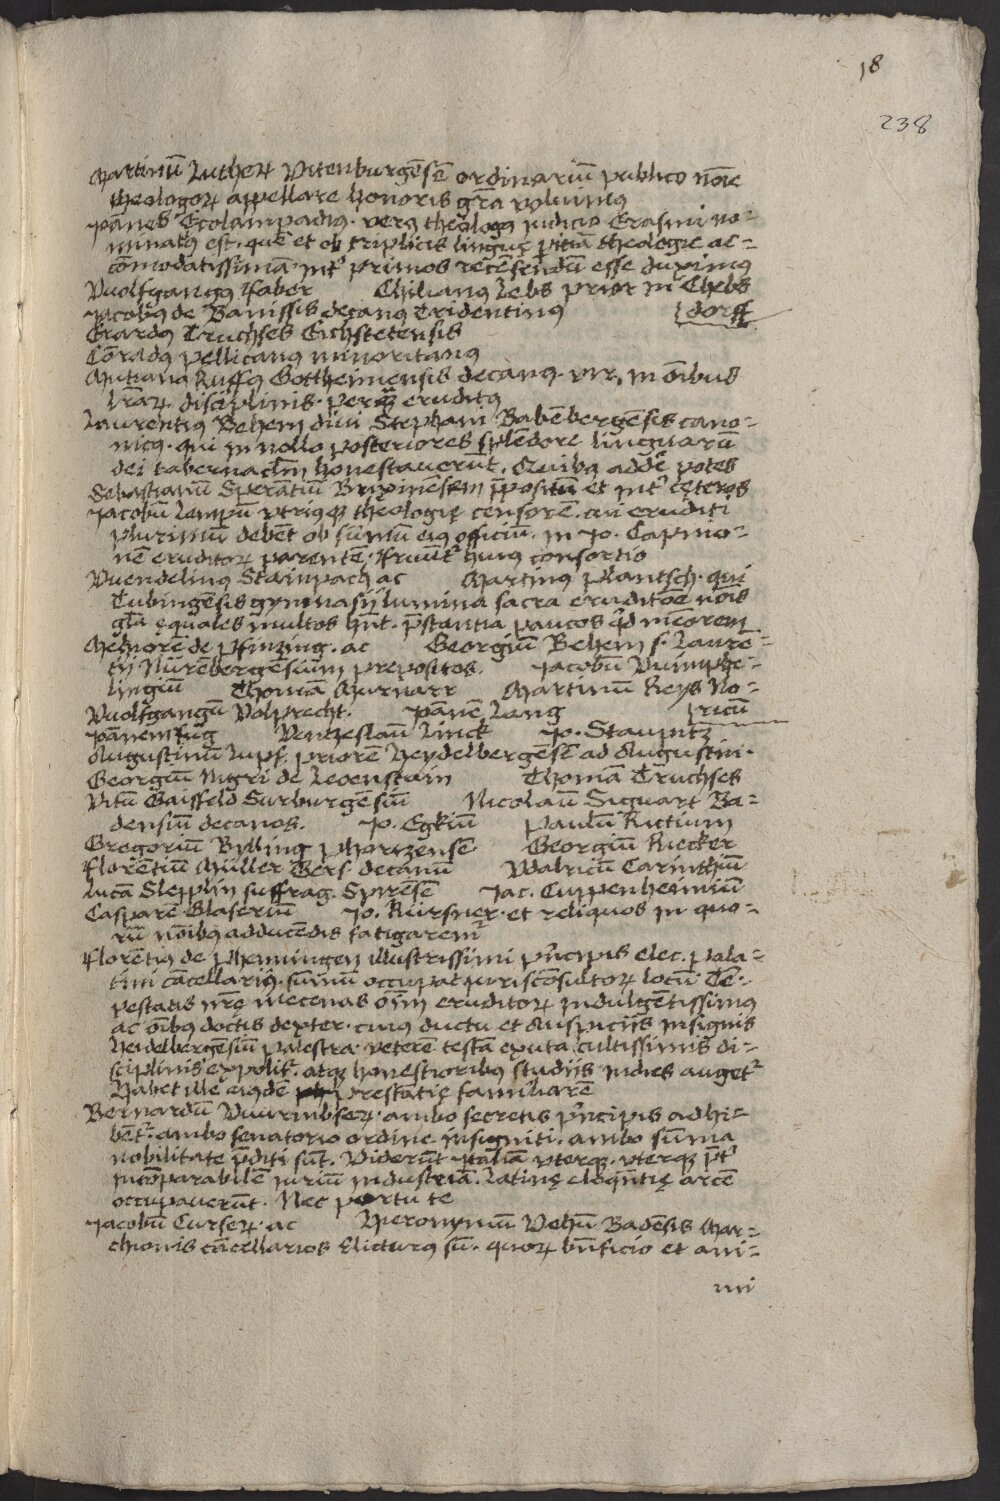 18
238
Martinū Lutherꝝ Vitenburgēsē ordinariū publico nōīe
theologoꝝ appellare honoris gr̄a voluimus
Joānes Ecolampadius. verus theologus judicio Erasmi no=
minatus est. quē et ob triplicis linguę pitiā theologie ac=
cōmodatissimā int̄ primos recēsendū esse duximus
Vuolfgangus Faber Chilianus Lebs prior in Chebs
Jacobus de Banissis decanus Tridentinus dorff
Erardus Truchses Eichstetensis
Cōradus pellicanus minoritanus
Mutianus Ruffus Gotthemensis decanus. vir, in ōibus
lr̄aꝝ disciplinis. perqꝫ eruditus
Laurentius Behem divi Stephani Babēbergēsis cano=
nicus. qui in nollo posteriores splēdore linguarū
dei tabernaclm̄ honestaverūt. Quibus addē potes
Sebastianū Sperātiū Brixinēsem p̄positū et int̄ cęteros
Jacobū Lempū vtriusqꝫ theologię censorē. cui eruditi
plurimū debēt ob sūmū eius officiū. in Jo. Capnio=
nē eruditoꝝ parentē. Fruūt̄ huius consortio
Vuendelinus Stainpach ac Martinus plantsch. qui
Tubingēsis gymnasij lumina sacra eruditōe nōis
glā ęquales multos hn̄t. p̄stantia paucos
Melhiorē de pfinzing. ac Georgiū Behem s. Laurē=
tij Nurēbergēsium prepositos. Jacobū Vuimphe=
lingiū Thomā Murnarr Martinū Keys No=
Vuolfgangū Volprecht. Joānē Lang ricū
Joānem Fug Venzeslaū Linck Jo. Staupitz
Augustinū Lupf. priorē Heydelbergēsē ad Augustin.
Georgiū Nigri de Leoenstain Thomā Truchses
Vitū Gaisfeld Surburgēsiū Nicolaū Siguart Ba=
densiū decanos. Jo. Egkiū Paulū Rictium
Gregoriū Bylling phortzensē Georgiū Riecker
Florētiū Müller Gers. decanū Walricū Carinthiū
Lucā Slepplin suffrag. Spirēsē Jac. Cuppenheimiū
Casparē Glaseriū Jo. Kürsner. et reliquos in quo=
rū nōibus adducēdis fatigarem̄
Florētius de phenningen illustrissimi prīcipis Elec. pala=
tini cācellarius. sūmū occupat jurisconsultoꝝ locū. Tē=
pestatis nr̄ę mecenas oīm̄ eruditoꝝ indulgētissimus
ac oībus doctis dexter. cuius ductu et auspicijs insignis
Heidelbergēsium palestra. veterē testā exuta cultissimis di=
sciplinis expolit̄. atqꝫ honestioribus studijs indies auget̄
Habet ille eiusdē prestātię familiarē
Bernardū Vuurmbserꝝ. ambo secretis prīcipis adhi=
bēt̄. ambo senatorio ordine insigniti. ambo sūma
nobilitate p̄diti sūt. Viderūt Italiā vterqꝫ. vterqꝫ
incōparabilē iuriū industriā. Latinę eloqūtię arcē
occupauerūt. Nec partu te
Jacobū Curserꝝ. ac Hieronymū Vehū Badēsis Mar=
chionis cācellarios Elicturus sū. quoꝝ bn̄ficio et ani=
mi